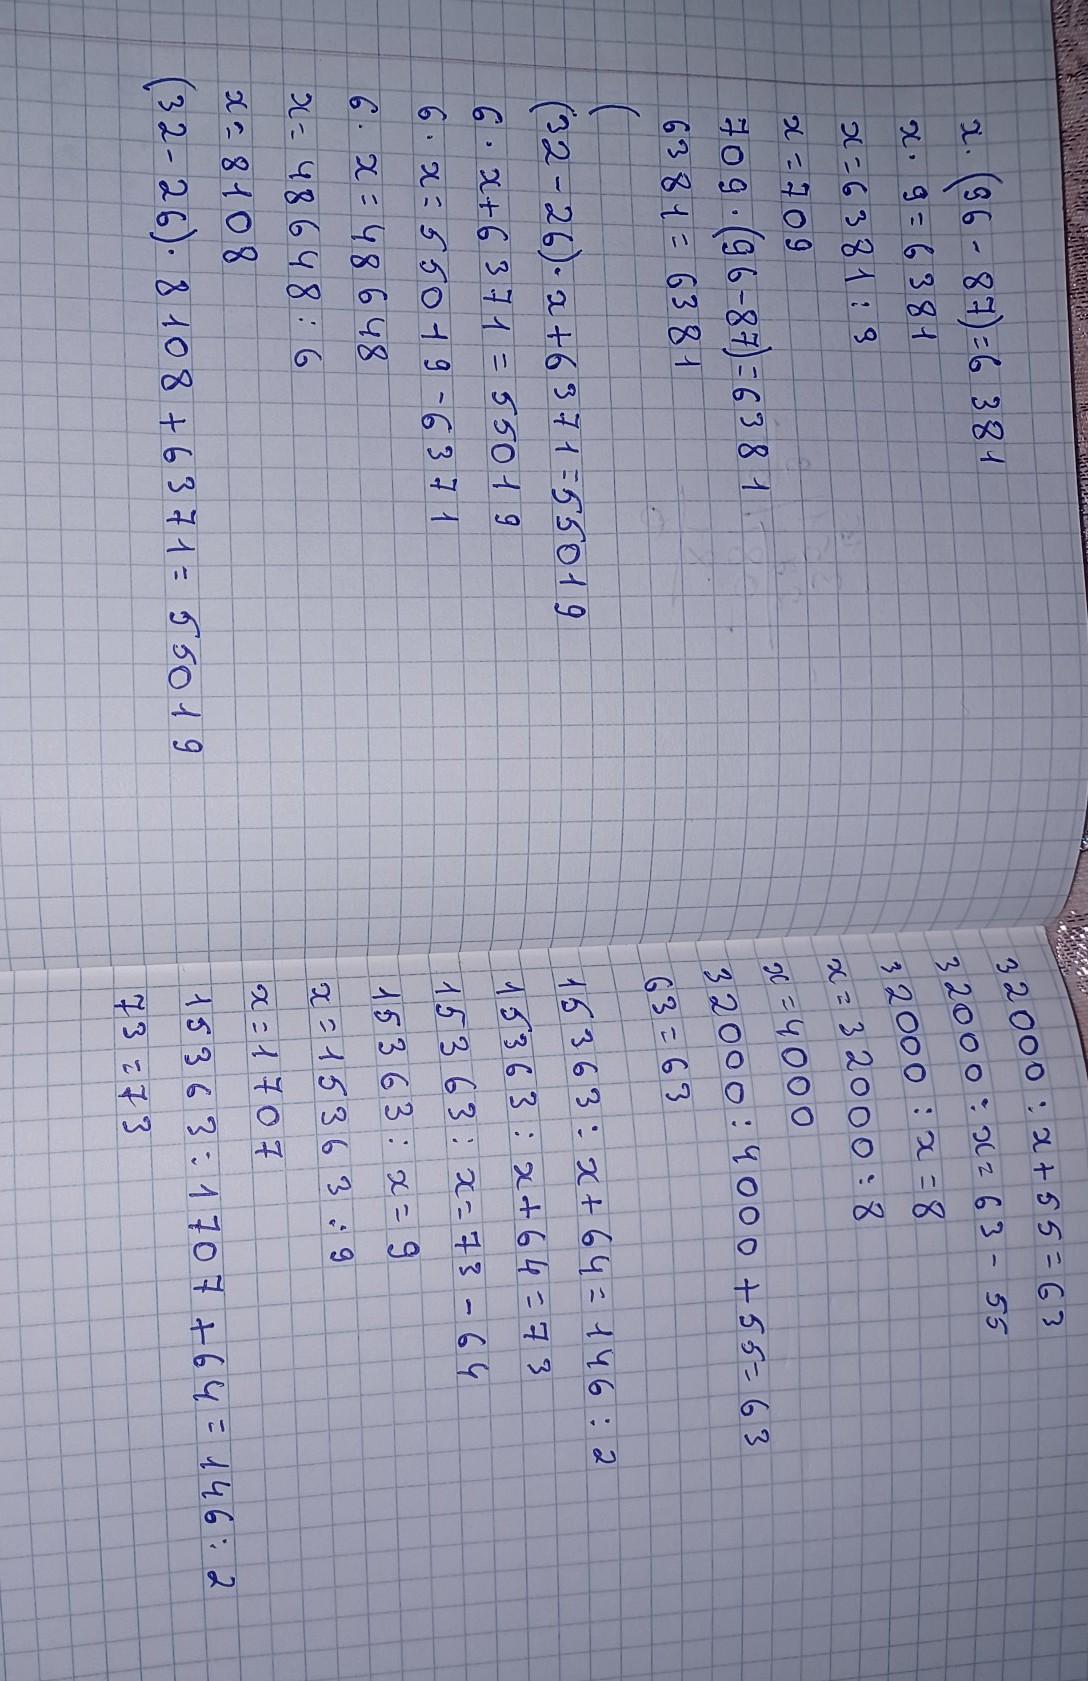 x·(96-87)=6381
x·9=6381
x=6381:9
x=709
709·(96-87)=6381
6381=6381
(
(32-26)·x+6371=55019
6·x+6371=55019
6·x=55019-6371
6·x=48648
x=48648:6
x=8108
(32-26)·8108+6371=55019
32000:x+55=63
32000:x=63-55
32000:x=8
x=32000:8
x=4000
32000:4000+55=63
63=63
15363:x+64=146:2
15363:x+64=73
15363:x=73-64
15363:x=9
x=15363:9
x=1707
15363:1707+64=146:2
73=73